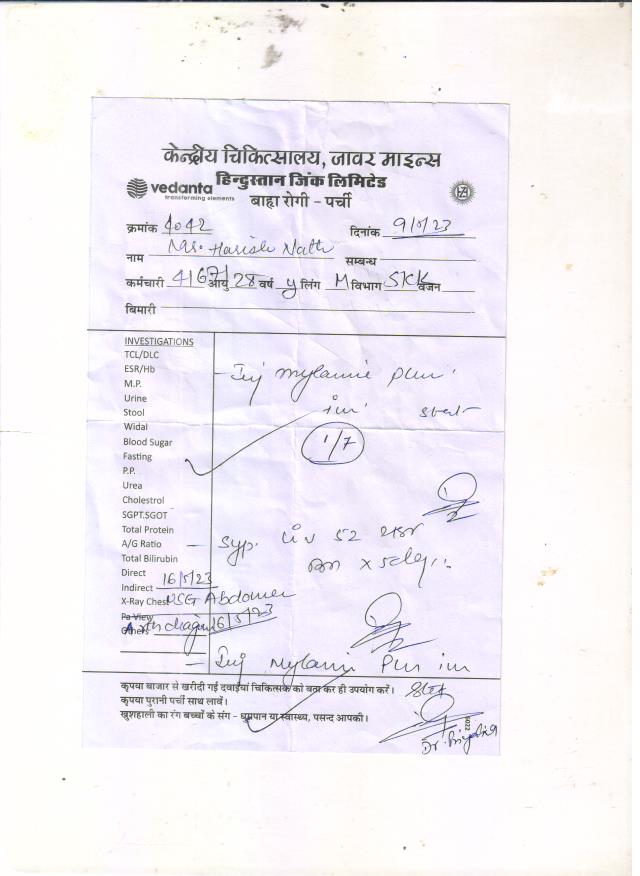 केन्द्रीय चिकित्सालय, जावर माइन्स
हिन्दुस्तान जिंक लिमिटेड
vedanta
transforming elements
बाह्य रोगी - पर्ची
क्रमांक 4042 दिनांक 9/5/23
नाम Mr. Harish Nath सम्बन्ध
कर्मचारी 4167 आयु 28 वर्ष y लिंग M विभाग SKK वजन
बिमारी
INVESTIGATIONS
TCL/DLC
ESR/Hb
M.P.
Urine
Stool
Widal
Blood Sugar
Fasting
P.P.
Urea
Cholestrol
SGPT.SGOT
Total Protein
A/G Ratio
Total Bilirubin
Direct 16/5/23
Indirect
X-Ray Chest USG Abdomen
Pa View
Others 16/5/23
- Inj
im stat
1/7
- Syp. Liv 52
x 5 days
- Inj im
stat
कृपया बाजार से खरीदी गई दवाईयां चिकित्सक को बता कर ही उपयोग करें।
कृपया पुरानी पर्ची साथ लावें।
खुशहाली का रंग बच्चों के संग - धुम्रपान या स्वास्थ्य, पसन्द आपकी।
Dr.